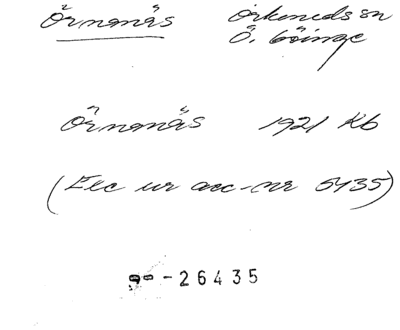 Örnanäs Örkeneds sn
Ö. Göinge
Örnanäs 1921 Kb
(Exc ur acc-nr 6435)
-26435